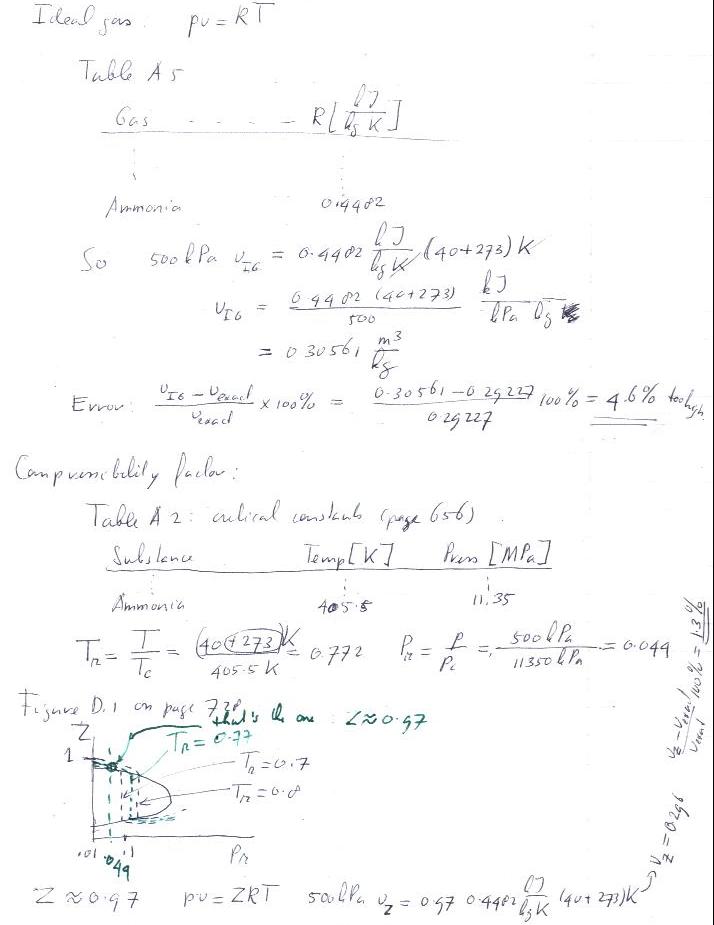 Ideal gas: pv = RT
Table A5
Gas - - - - R [kJ/kg K]
Ammonia 0.4482
So 500 kPa v_IG = 0.4482 kJ/kg K (40+273) K
v_IG = 0.4482 (40+273)/500 kJ/kPa kg
= 0.30561 m³/kg
Error: (v_IG - v_exact)/v_exact × 100% = (0.30561 - 0.29227)/0.29227 100% = 4.6% too high
Compressibility factor:
Table A2: critical constants (page 656)
Substance Temp [K] Press [MPa]
Ammonia 405.5 11.35
T_R = T/T_c = (40+273)K/405.5 K = 0.772 P_R = P/P_c = 500 kPa/11350 kPa = 0.044
Figure D.1 on page 728
that's the one: Z≈0.97
Z
T_R = 0.77
1
T_R = 0.7
T_R = 0.8
.01 .044 .1
P_R
Z ≈ 0.97 pv = ZRT 500 kPa v_Z = 0.97 0.4482 kJ/kg K (40+273)K
v_Z = 0.296 (v_Z - v_exact)/v_exact 100% = 1.3%